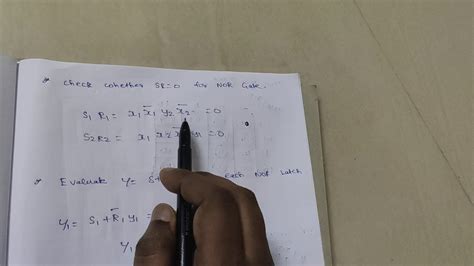 * Check whether SR=0 for NOR Gate.
S₁ R₁ = x₁ x̄₁ y₂ x̄₂ = 0
S₂R₂ = x₁ x₂ = 0
* Evaluate Y = each NOR Latch
y₁ = S₁ + R̄₁ y₁ =
y₁